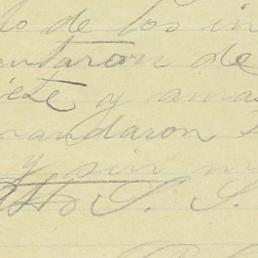 lo de los in
ntaron de
iete y ama
mandaron
y sin m
S. S.